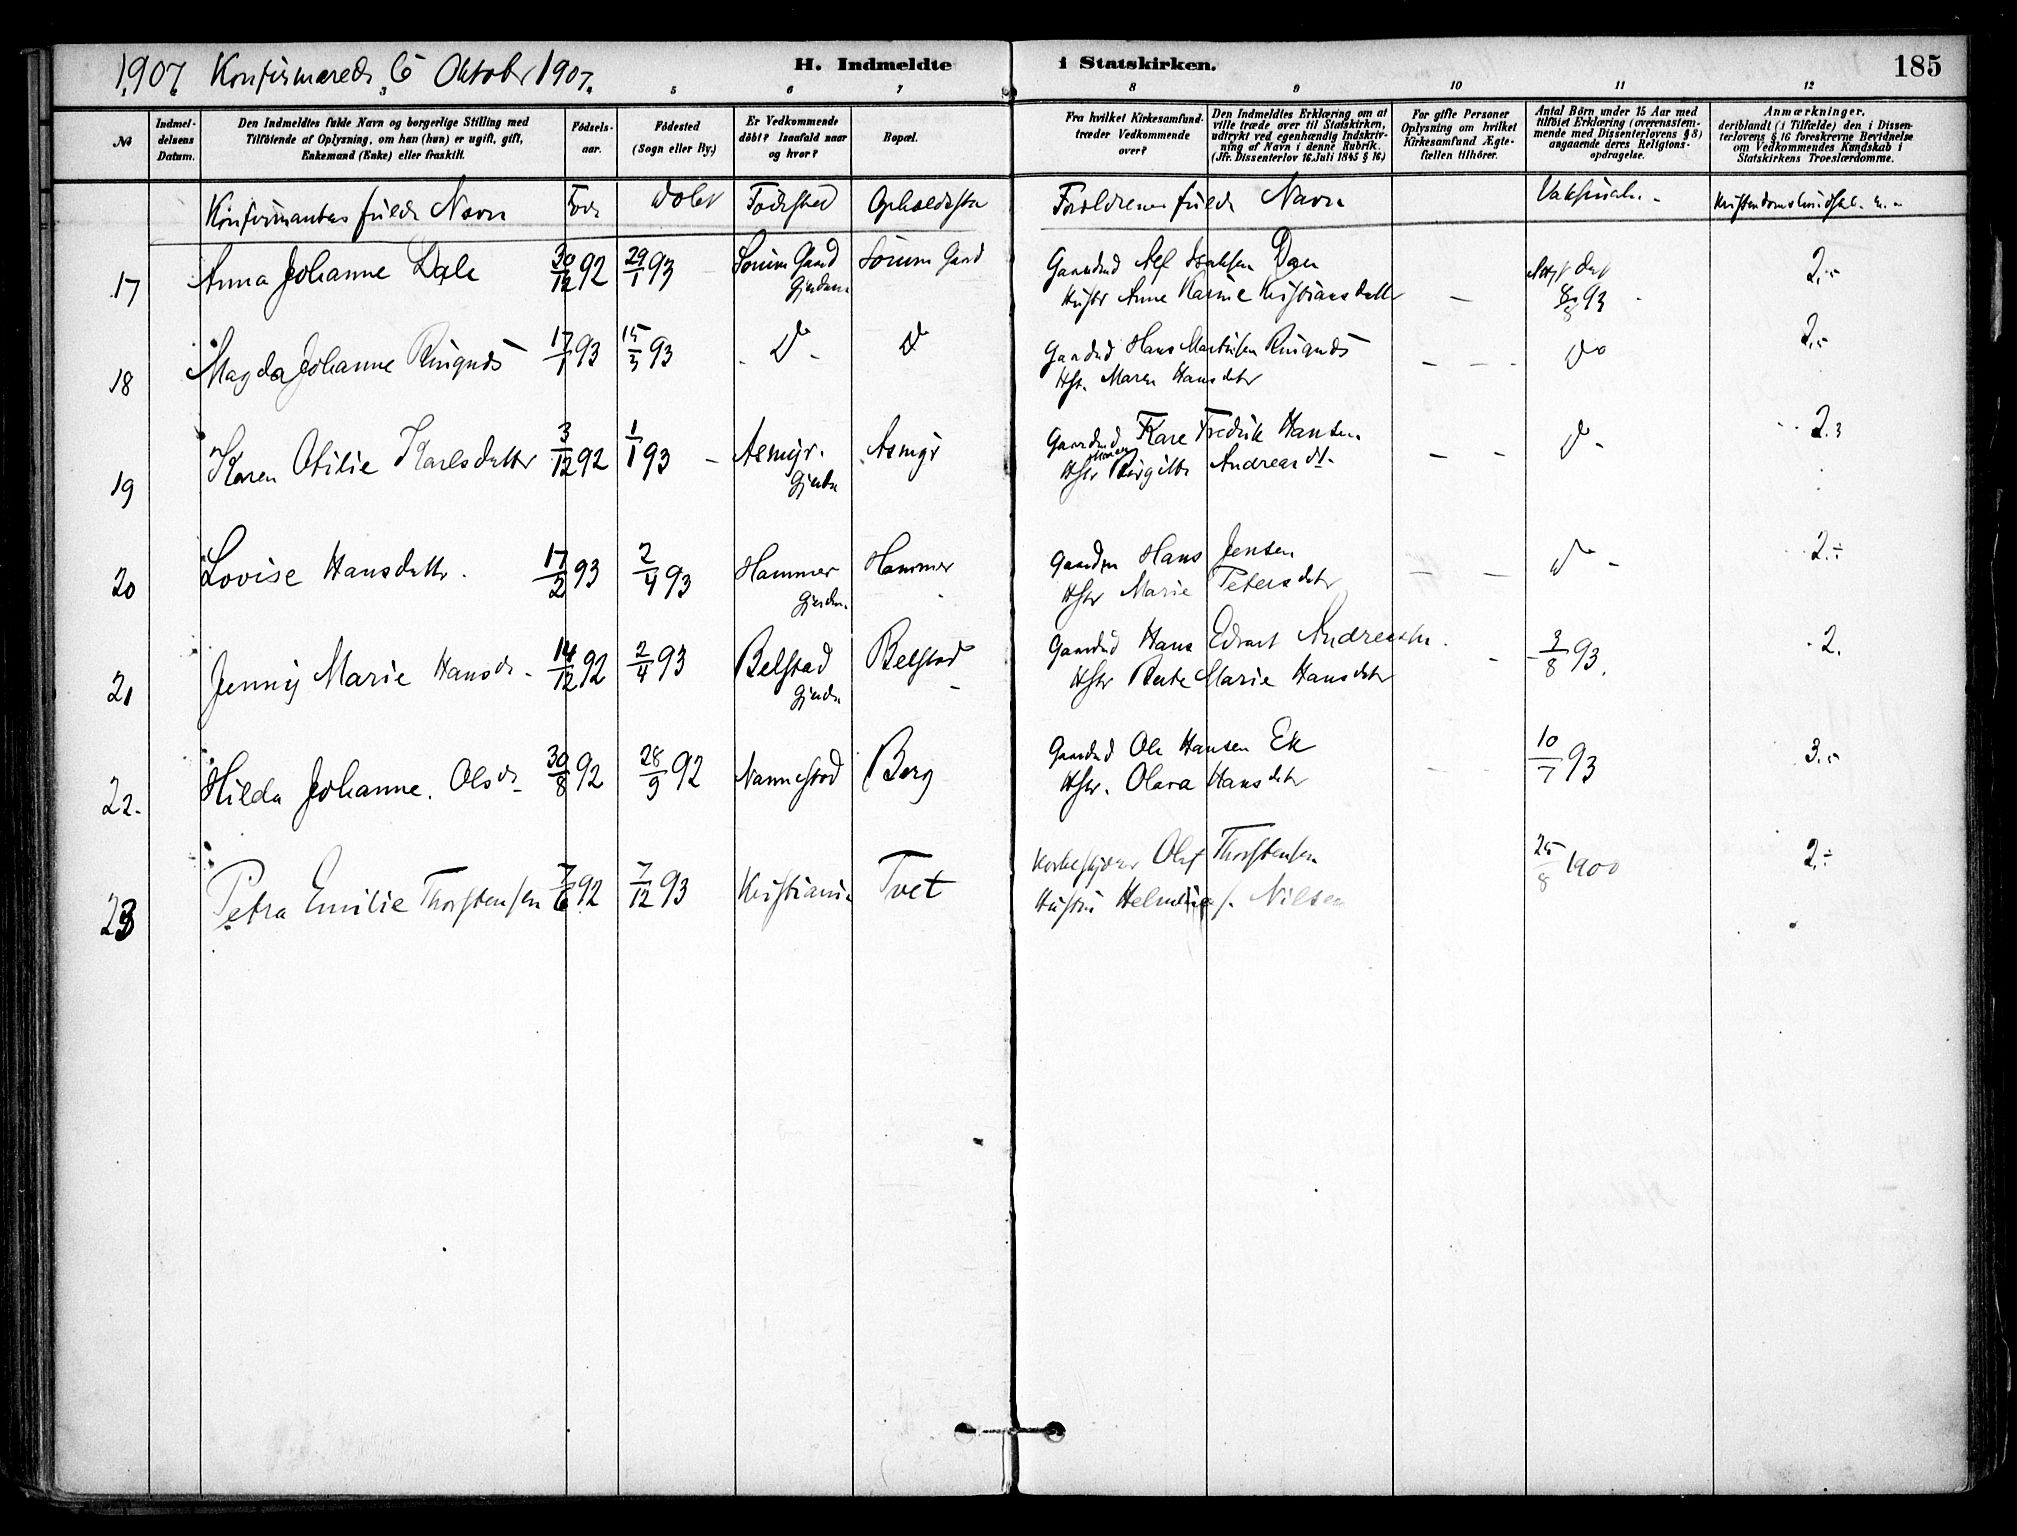 1907. Konfirmerede 6 Oktober 1907.
H. Indmeldte i Statskirken.
185
3 5 6 7 8 9 10 11 12
No
Indmel-
delsens
Datum.
Den Indmeldtes fulde Navn og borgerlige Stilling med
Tilföiende af Oplysning, om han (hun) er ugift, gift,
Enkemand (Enke) eller fraskilt.
Födsels-
aar.
Födested
(Sogn eller By.)
Er Vedkommende
döbt? Isaafald naar
og hvor?
Bopæl.
Fra hvilket Kirkesamfund
træder Vedkommende
over?
Den Indmeldtes Erklæring om at
ville træde over til Statskirken,
udtrykt ved egenhændig Indskriv-
ning af Navn i denne Rubrik.
(Jfr. Dissenterlov 16 Juli 1845 § 16.)
For gifte Personer
Oplysning om hvilket
Kirkesamfund Ægte-
fællen tilhörer.
Antal Börn under 15 Aar med
tilföiet Erklæring (overensstem-
mende med Dissenterlovens § 8)
angaaende deres Religions-
opdragelse.
Anmærkninger,
deriblandt (i Tilfælde) den i Dissen-
terlovens § 16 foreskrevne Bevidnelse
om Vedkommendes Kundskab i
Statskirkens Troeslærdomme.
Konfirmantens fulde Navn Döbt Födested Forældrenes fulde Navn
17 Anna Johanne Dale 30/12 92 29/1 93 Sörum Gaard Sörum Gaard Gaardmd Isaksen 2.-
Hustr Anne Karine Kristiansdatter 8/8 93
18 Magda Johanne Ringnæs 17/1 93 15/3 93 Do Do Gaardmd Hans Martinsen Ringnæs Do 2.-
Hstr. Maren Hansdtr
19 Karen Otilie Karlsdatter 3/12 92 1/1 93 Asmyr. Asmyr Gaardmd Fredrik Hansen Do 2.3
Gjerdr Hstr Maren Birgitte Andreasdt.
20 Lovise Hansdatter. 17/2 93 2/4 93 Hammer Hammer Gaardm Hans Jensen Do 2.÷
Gjerdr. Hstr Marie Petersdatr
21 Jenny Marie Hansdr. 14/12 92 2/4 93 Belstad Belstad Gaardmd Hans Edvart Andreassen 3/8 93. 2.
Gjerdr Hstr Berte Marie Hansdatr
22. Hilda Johanne Olsdr. 30/8 92 28/9 92 Nannestad Berg Gaardmd Ole Hansen Ek 10/7 93 3.-
Hstr. Olava Hansdatr
23 Petra Emilie Thorstensen 7/6 92 7/12 93 Kristiania Tvet Olaf Thorstensen 25/8 1900 2.÷
Hustru Helmine f. Nilsen